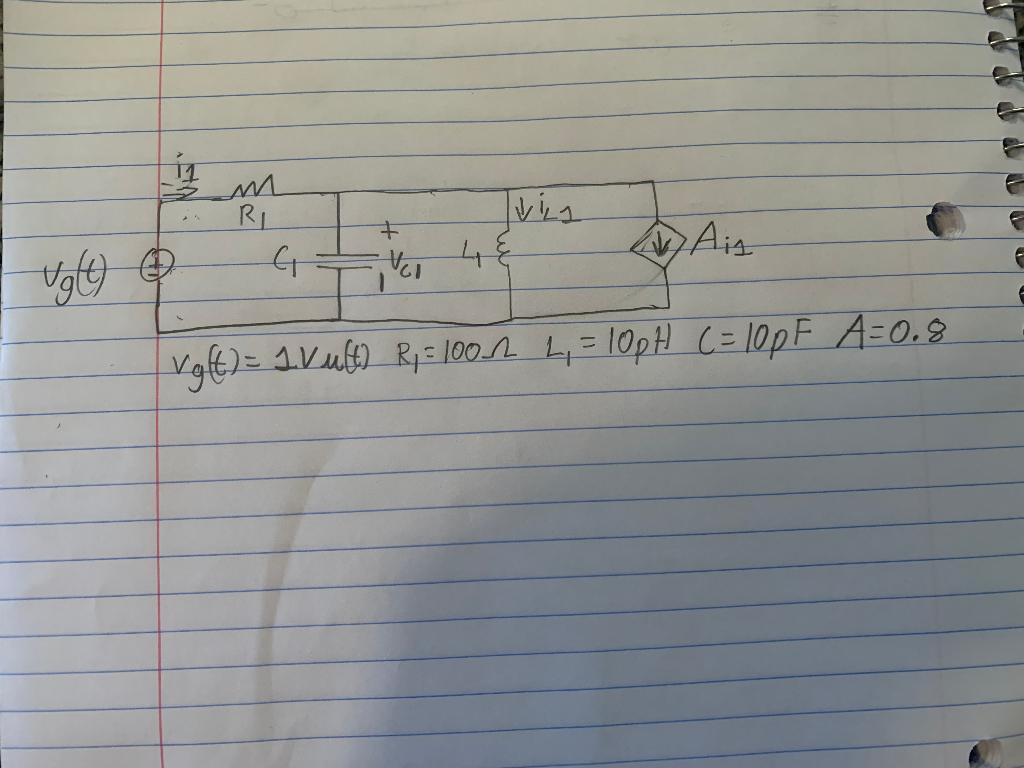 i1
R1
Vg(t)
+
C1
+
VC1
L1
iL1
Ai1
Vg(t) = 1Vu(t) R1 = 100Ω L1 = 10pH C = 10pF A = 0.8